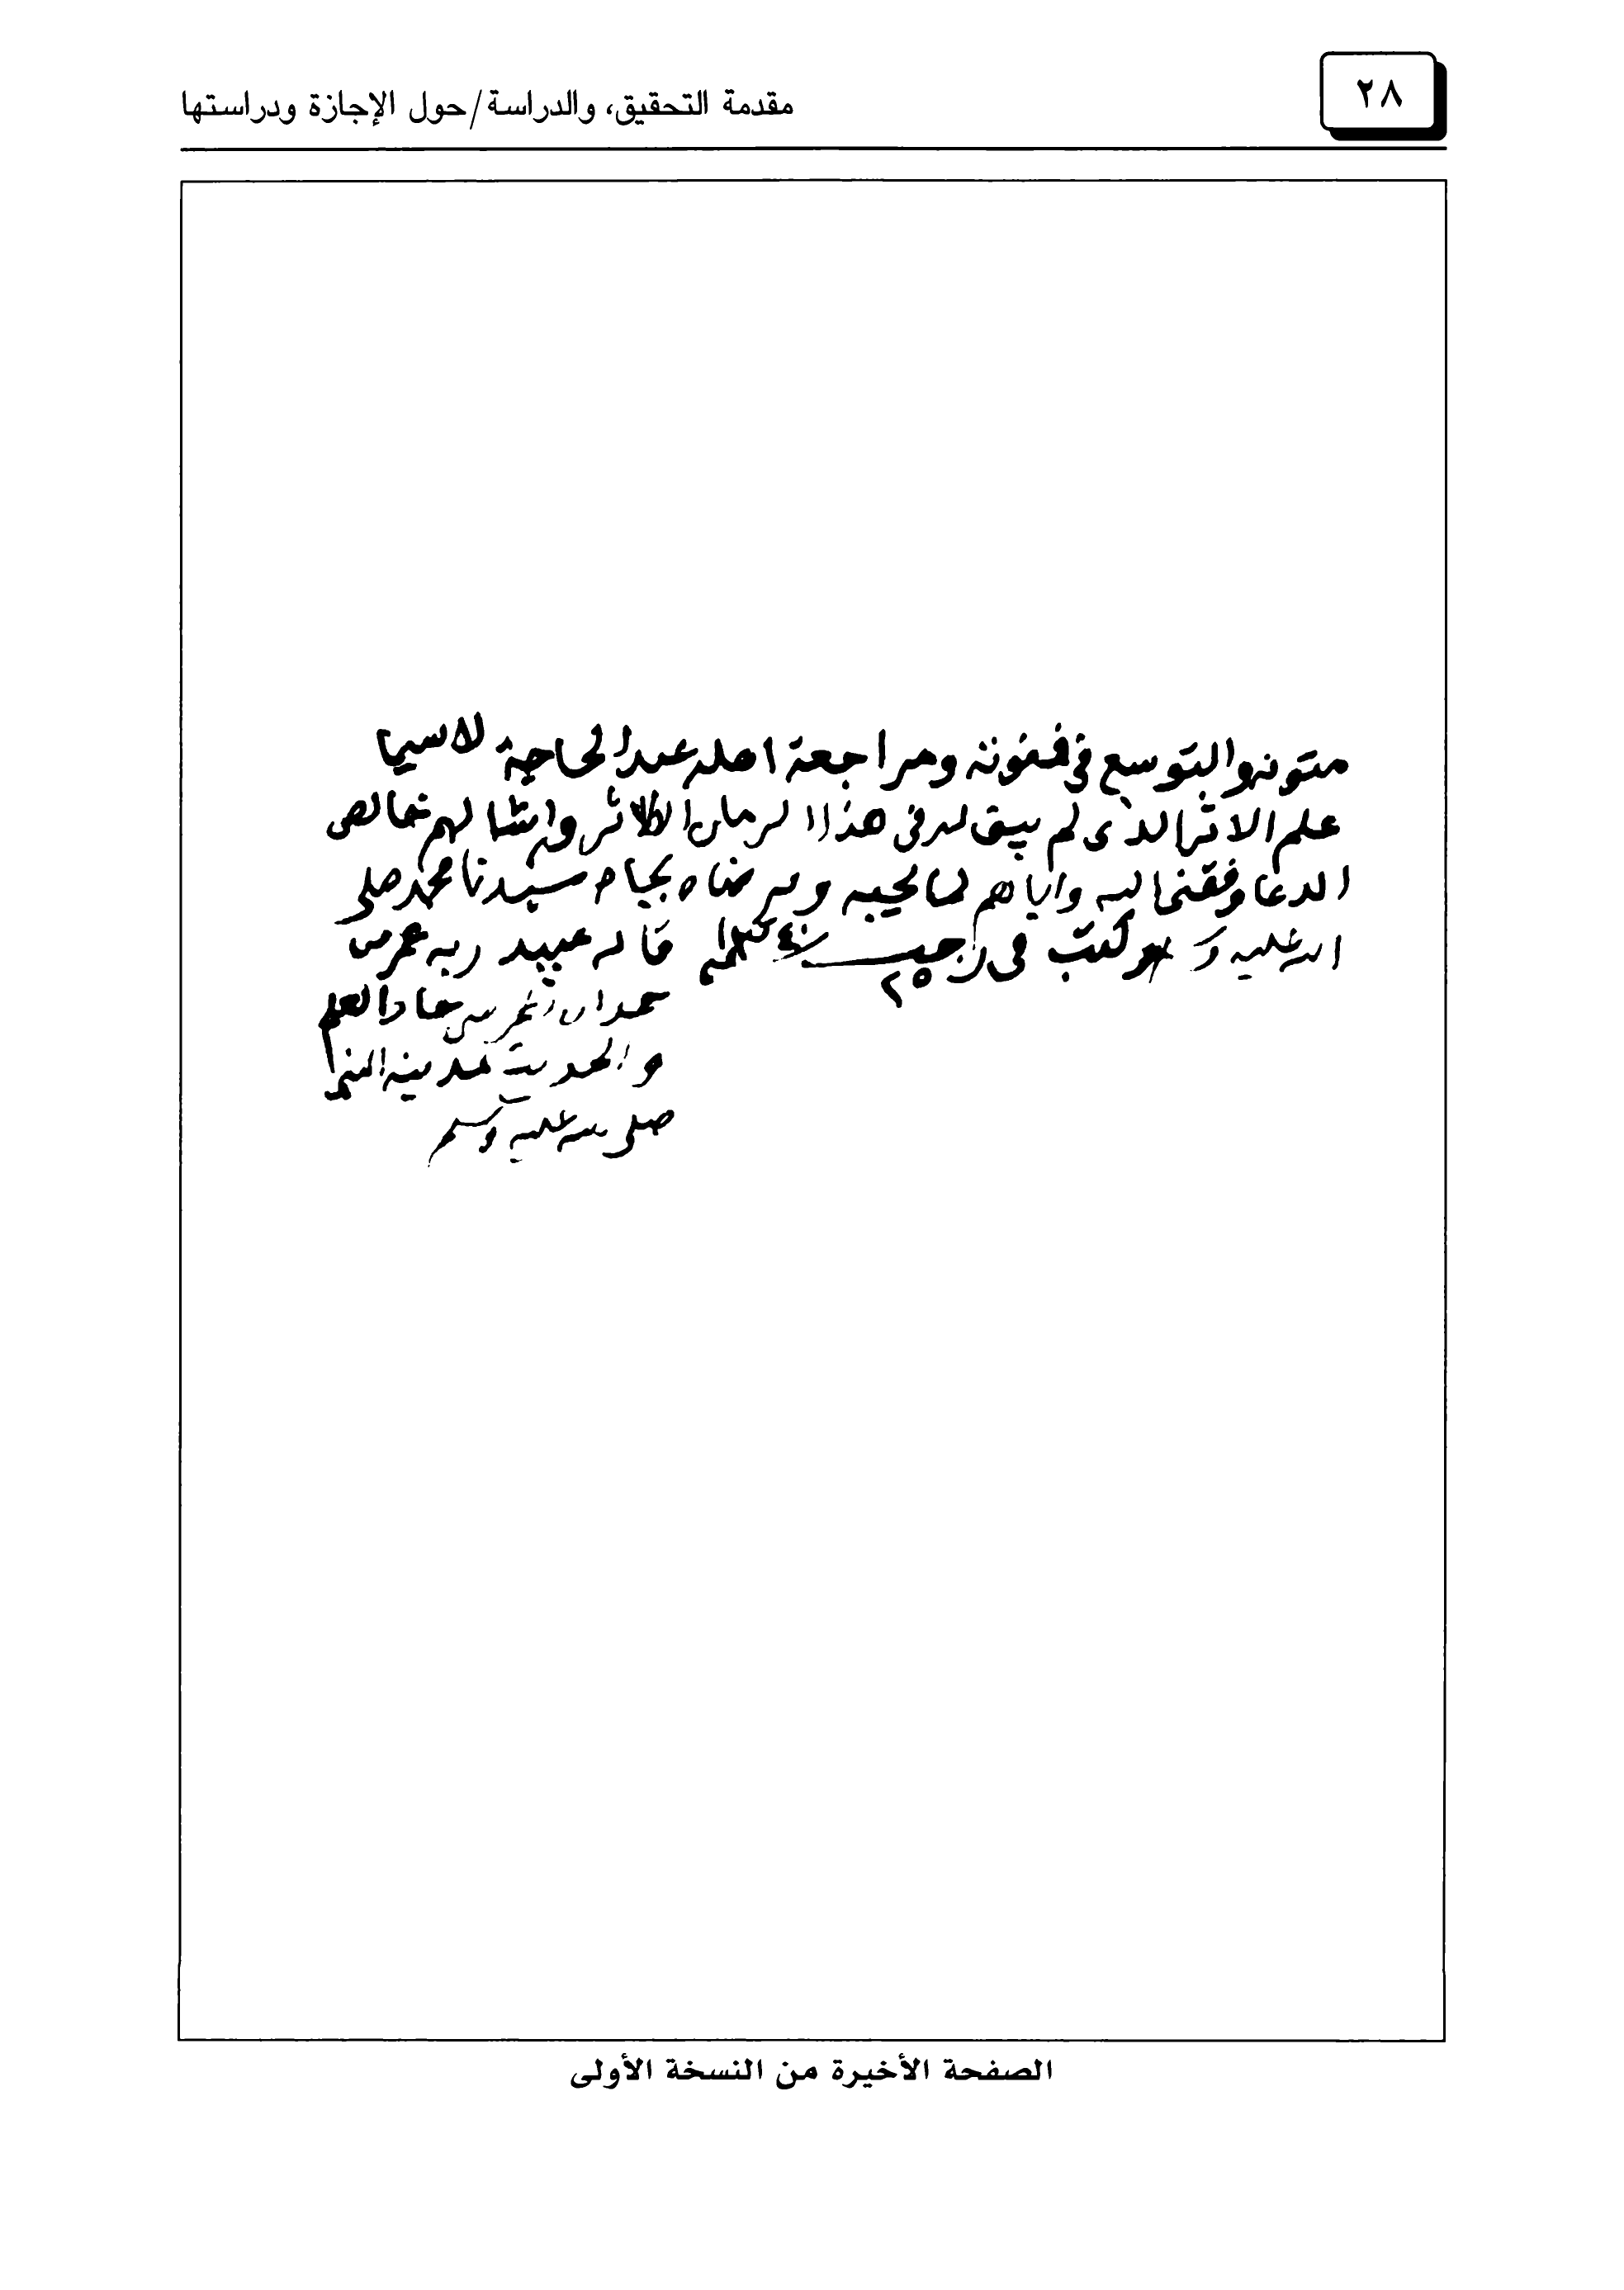 ٢٨
مقدمة التحقيق، والدراسة/حول الإجازة ودراستها
متونه والتوسع في فنونه ومراجعة اهله عند الحاجة لاسيما
علم الاثر الذى لم يبق له فى هذا الزمان الا الاثر واسال لهم خالص
الدعا وفقنى الله واياهم لما يحبه ويرضاه بجاه سيدنا محمد صلى
الله عليه و كتب فى رجب قاله عبيد ربه عمر بن
حمدان خادم العلم
والحديث بمدينة النبى
صلى الله عليه وسلم
الصفحة الأخيرة من النسخة الأولى